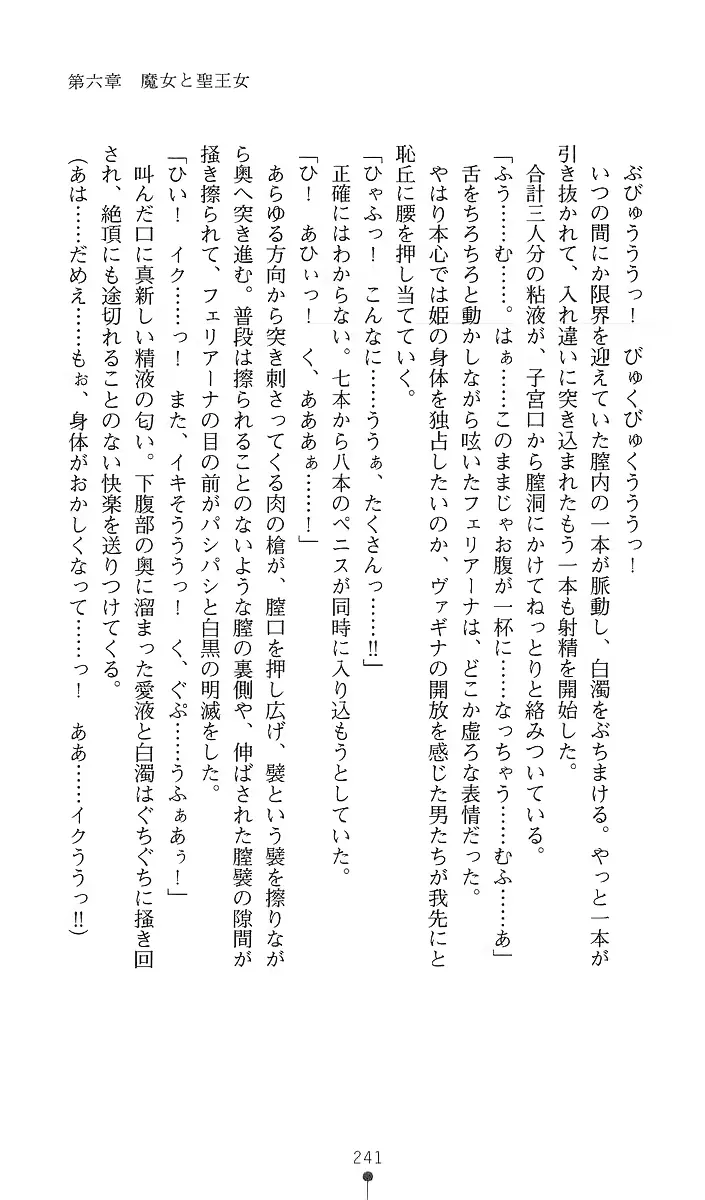 第六章　魔女と聖王女
ぶびゅうううっ！　びゅくびゅくうううっ！
いつの間にか限界を迎えていた膣内の一本が脈動し、白濁をぶちまける。やっと一本が
引き抜かれて、入れ違いに突き込まれたもう一本も射精を開始した。
合計三人分の粘液が、子宮口から膣洞にかけてねっとりと絡みついている。
「ふう……む……。はぁ……このままじゃお腹が一杯に……なっちゃう……むふ……あ」
舌をちろちろと動かしながら呟いたフェリアーナは、どこか虚ろな表情だった。
やはり本心では姫の身体を独占したいのか、ヴァギナの開放を感じた男たちが我先にと
恥丘に腰を押し当てていく。
「ひゃふっ！　こんなに……ううぁ、たくさんっ……‼」
正確にはわからない。七本から八本のペニスが同時に入り込もうとしていた。
「ひ！　あひぃっ！　く、あああぁ……！」
あらゆる方向から突き刺さってくる肉の槍が、膣口を押し広げ、襞という襞を擦りなが
ら奥へ突き進む。普段は擦られることのないような膣の裏側や、伸ばされた膣襞の隙間が
掻き擦られて、フェリアーナの目の前がパシパシと白黒の明滅をした。
「ひい！　イク……っ！　また、イキそううっ！　く、ぐぷ……うふぁあぅ！」
叫んだ口に真新しい精液の匂い。下腹部の奥に溜まった愛液と白濁はぐちぐちに掻き回
され、絶頂にも途切れることのない快楽を送りつけてくる。
(あは……だめえ……もぉ、身体がおかしくなって……っ！　ああ……イクううっ‼)
241